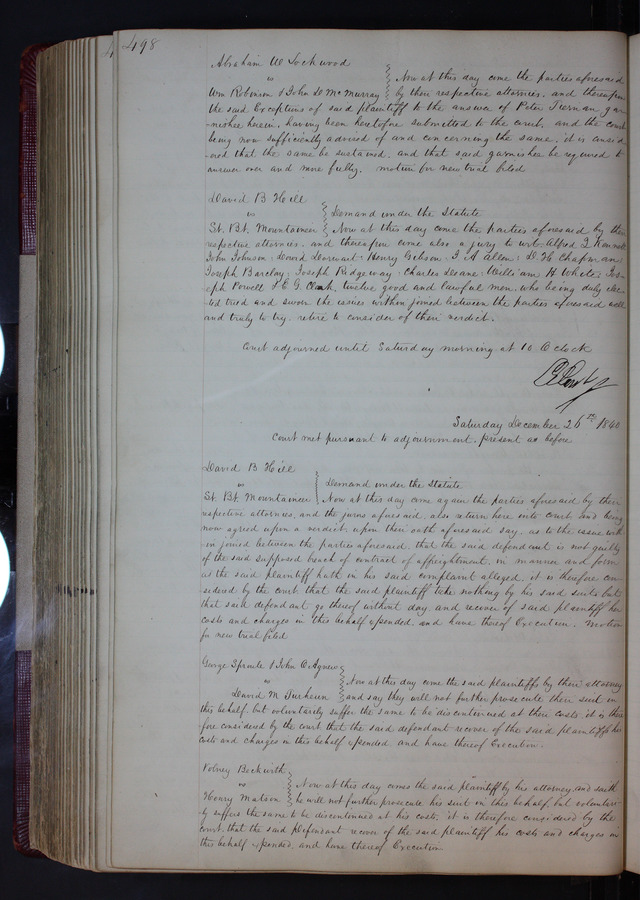 498
Abraham W Lockwood
vs
Wm Robinson & John D McMurray } Now at this day come the parties aforesaid
by their respective attornies, and thereupon
the said Exceptions of said plaintiff to the answer of Peter Tiernan gar-
-nishee herein, having been heretofore submitted to the court, and the court
being now sufficiently advised of and concerning the same, it is consid
-ered that the same be sustained, and that said garnishee be required to
answer over and more fully. motion for new trial filed
David B Hill
vs } Demand under the Statute
St. Bt. Mountaineer } Now at this day come the parties aforesaid by their
respective attornies, and thereupon came also a jury to wit: Alfred
John Johnson: David Henry Gibson: J A Allen: D. H Chapman:
Joseph Barclay: Joseph Ridgeway: Charles Deane: William H White: Jos-
eph Powell & E G Clark, twelve good and lawful men, who being duly elec-
ted tried and sworn the issues within joined between the parties aforesaid well
and truly to try, retire to consider of their verdict.
Court adjourned until Saturday morning at 10 O clock
Saturday December 26th 1840
Court met pursuant to adjournment. present as before
David B Hill
vs } Demand under the Statute
St. Bt. Mountaineer } Now at this day come again the parties aforesaid by their
respective attornies, and the jurors aforesaid, also return here into court and being
now agreed upon a verdict, upon their oath aforesaid say, as to the issue with-
-in joined between the parties aforesaid, that the said defendant is not guilty
of the said supposed breach of contract of affreightment, in manner and form
as the said plaintiff hath in his said complaint alleged, it is therefore con-
sidered by the court that the said plaintiff take nothing by his said suit but
that said defendant go thereof without day and recover of said plaintiff her
costs and charges in this behalf expended, and have thereof Execution. Motion
for new trial filed
George Sproule & John C Agnew
vs } Now at this day come the said plaintiffs by their attorney
David M } and say they will not further prosecute their suit in
this behalf, but voluntarily suffer the same to be discontinued at their costs, it is there
fore considered by the court that the said defendant recover of the said plaintiffs his
costs and charges in this behalf expended and have thereof Execution.
Volney Beckwith
vs } Now at this day comes the said plaintiff by his attorney and saith
Henry Matson } he will not further prosecute his suit in this behalf, but voluntari-
-ly suffers the same to be discontinued at his costs, it is therefore considered by the
court, that the said Defendant recover of the said plaintiff his costs and charges in
this behalf expended, and have thereof Execution